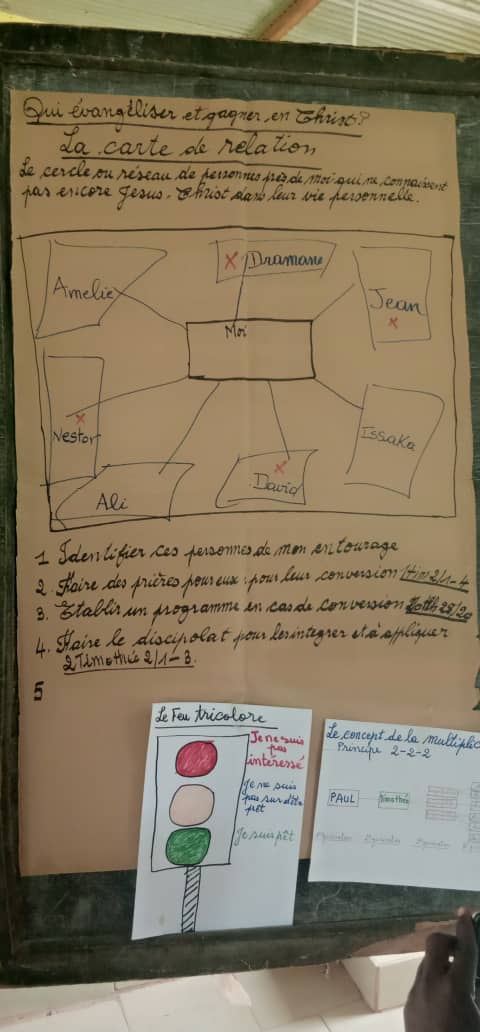 Qui évangéliser et gagner en Christ?
La carte de relation
Le cercle ou réseau de personnes près de moi qui ne connaissent
pas encore Jesus-Christ dans leur vie personnelle.
Amelie
X Dramane
Jean
X
Moi
X
Nestor
Issaka
Ali
X
David
1 Identifier ces personnes de mon entourage
2. Faire des prières pour eux: pour leur conversion 1tim 2/1-4
3. Etablir un programme en cas de conversion Matth 28/20
4. Faire le discipolat pour les integrer et à appliquer
2Timothée 2/1-3.
5
Le Feu tricolore
Je ne suis
pas
intéressé
Je ne suis
pas sur d'être
prêt
Je suis prêt
Le concept de la multiplic
Principe 2-2-2
PAUL
Timothée